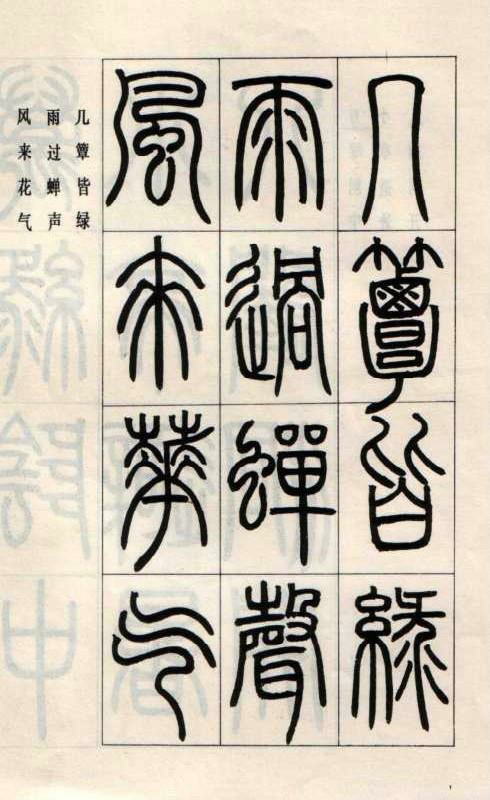 几簟皆綠
雨過蟬聲
風來華气
几簟皆绿
雨过蝉声
风来花气
1